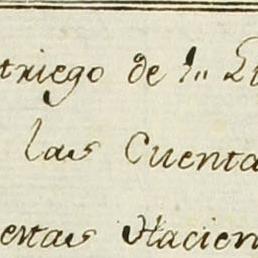 triego de
las Cuenta
ertas Hacien